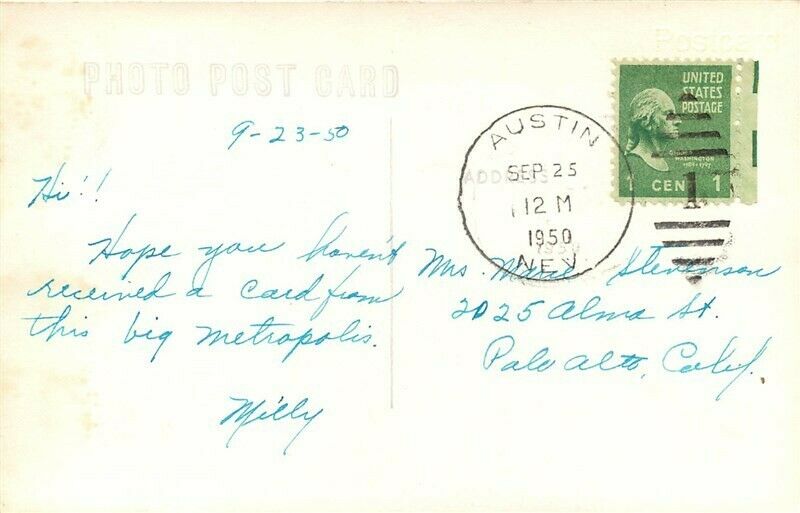 Postcard
PHOTO POST CARD
UNITED
STATES
POSTAGE
WASHINGTON
1 CENT 1
AUSTIN
SEP 25
12 M
1950
NEV.
1
ADDRESS
9-23-50
Hi!!
Hope you haven't
received a card from
this big metropolis.
Milly
Mrs. Marie Stevenson
2025 Alma St.
Palo Alto, Calif.